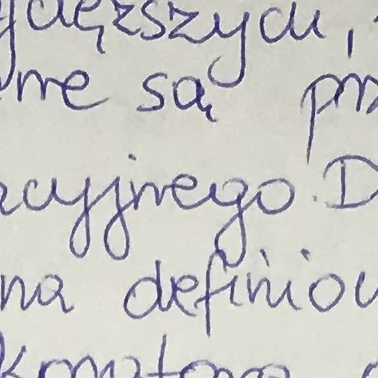 ycięższych,
me są prz
acyjnego. D
na definiow